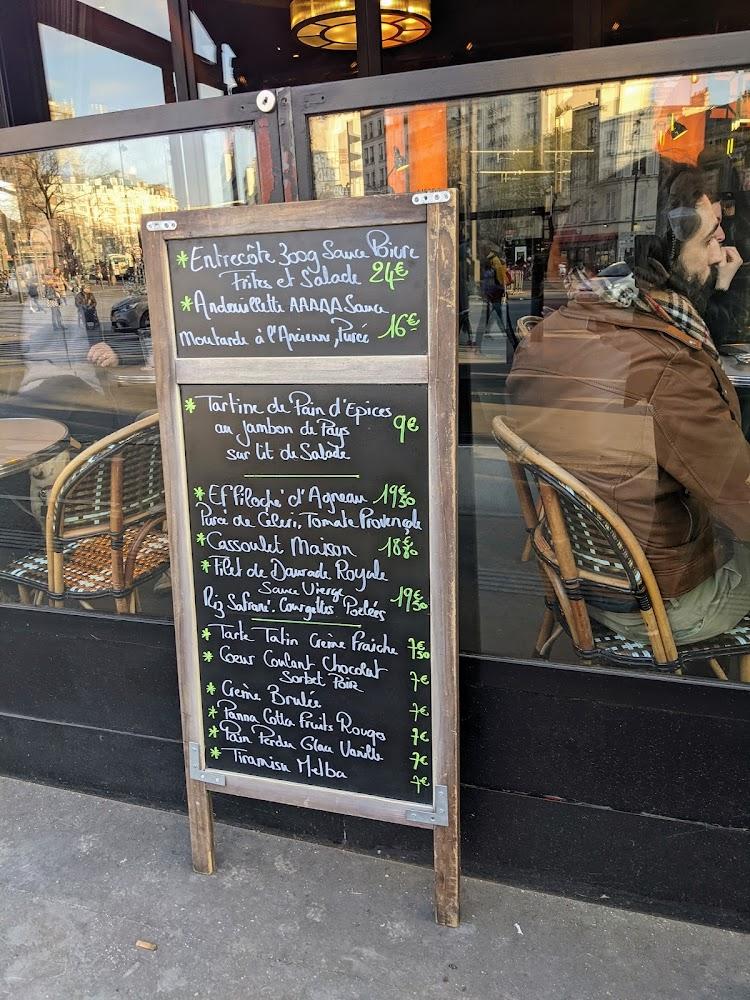 * Entrecôte 300g Sauce Poivre
Frites et Salade 24€
* Andouillette AAAAA Sauce
Moutarde à l'Ancienne, Purée 16€
* Tartine de Pain d'Epices
au jambon de Pays 9€
sur lit de Salade
* Effiloché d'Agneau 19€50
Purée de Céleri, Tomate Provençale
* Cassoulet Maison 18€80
* Filet de Daurade Royale
Sauce Vierge
Riz Safrané, Courgettes Poêlées 19€50
* Tarte Tatin Crème Fraiche 7€50
* Cœur Coulant Chocolat
Sorbet Poire 7€
* Crème Brulée 7€
* Panna Cotta Fruits Rouges 7€
* Pain Perdu Glace Vanille 7€
* Tiramisu Melba 7€